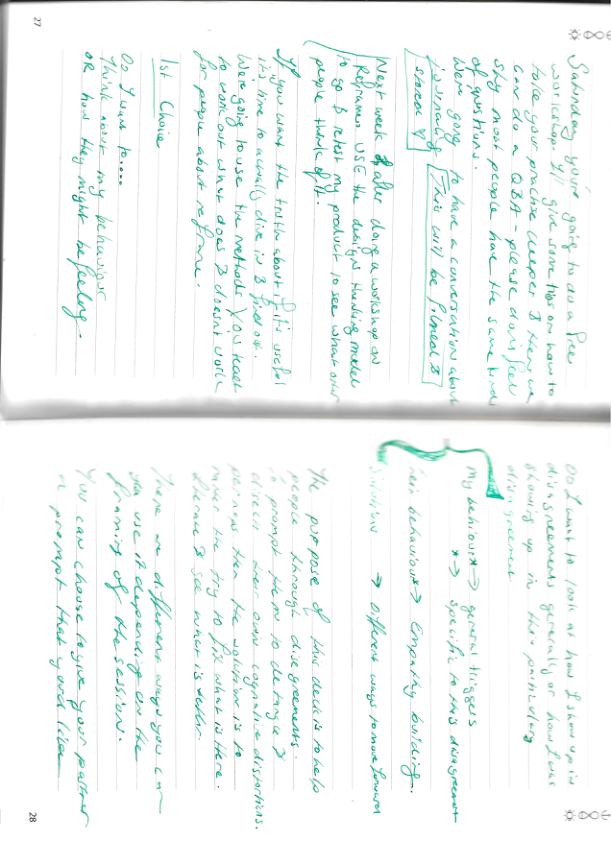 27
Saturday you're going to do a free
workshop. I'll give some tips on how to
take your practise deeper & then we
can do a Q&A - please don't feel
shy most people have the same kinds
of questions.
We're going to have a conversation about
journaling This will be filmed &
stored
Next week after doing a workshop on
Reframes USE the designs thinking model
to go & retest my product to see what other
people think of it.
If you want the truth about if its useful
it's time to actually dive in & find out.
We're going to use the methods you teach
to work out what does & doesn't work
for people about reframe.
1st Choice
Do I want to....
Think about my behaviour
OR how they might be feeling.
Do I want to look at how I show up in
disagreements generally or how I was
showing up in this particular
disagreement
My behaviour → general triggers
→ specific to this disagreement
Their behaviour → Empathy building.
Solutions → Different ways to move forward
The purpose of this deck is to help
people through disagreements.
To prompt them to detangle &
direct their own cognitive distortions.
Perhaps then the solution is to
rather than try to fix what is there.
Please & see what is
There are different ways you can
you use it depending on the
framing of the session.
You can choose to give your partner
a prompt that you'd like
28